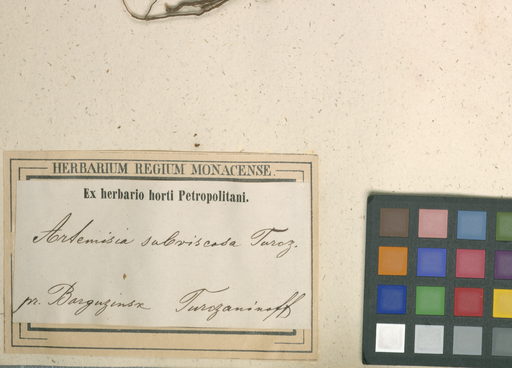 HERBARIUM REGIUM MONACENSE.
Ex herbario horti Petropolitani.
Artemisia subviscosa Turcz.
pr. Barguzinsk Turczaninoff